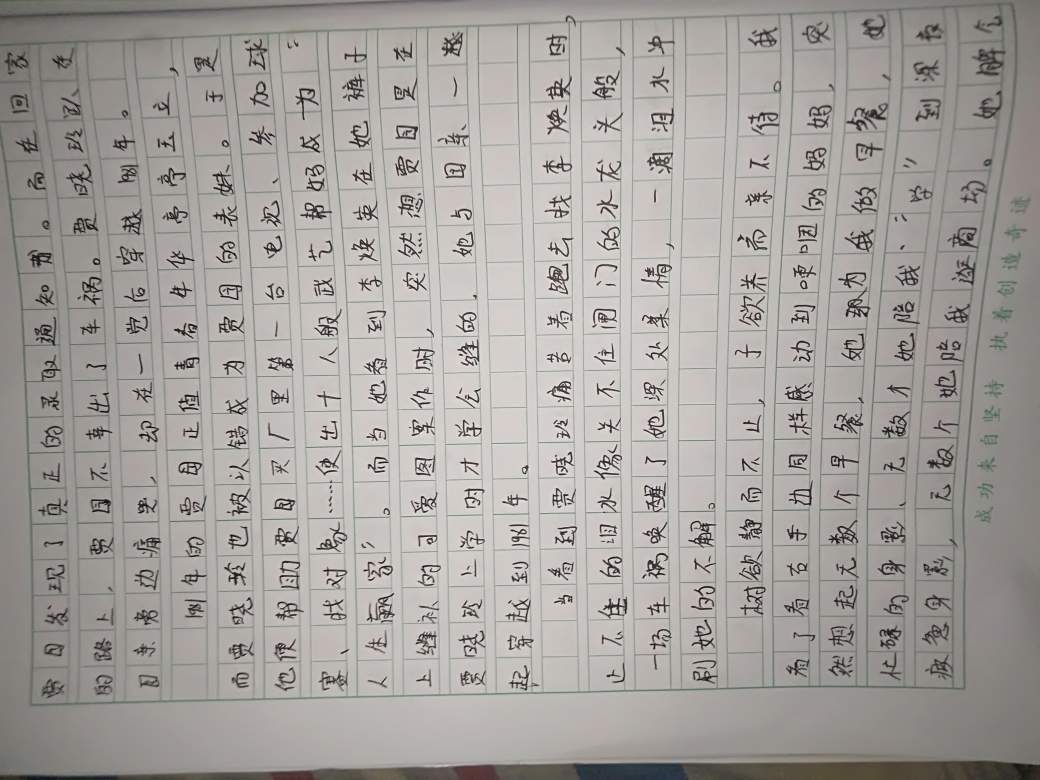 贾母发现了真正的录取通知书。而在回家
的路上，贾母不幸出了车祸。贾晓玲趴在
母亲旁边痛哭，却在一觉后穿越1981年。
1981年的贾母正值青春年华亭亭玉立，
而贾晓玲也被认错成为贾母的表妹。于是
他便帮助贾母买厂里第一台电视、参加球
赛、找对象……使出十八般武艺帮妈成为“
人生赢家”。而当她看到李焕英在她裤子
上缝补的可爱图案作时，突然想贾母是在
贾晓玲上学时才学会缝的，她与母亲一起
起穿越到1981年。
当看到贾晓玲痛苦着跑去找李焕英时，
止不住的泪水像关不住闸门的水龙头般，
一场车祸唤醒了她深处柔情，一滴泪水冲
刷她的不解。
树欲静而不止，子欲养而亲不待。我
看了看右手边同样感动到哽咽的妈妈，突
然想起无数个早餐，她取为我做早餐，她
忙碌的身影、无数个她陪我“学”到深夜
疲惫身影，无数个她陪我逛商场。她解个
成功来自坚持 执着创造奇迹